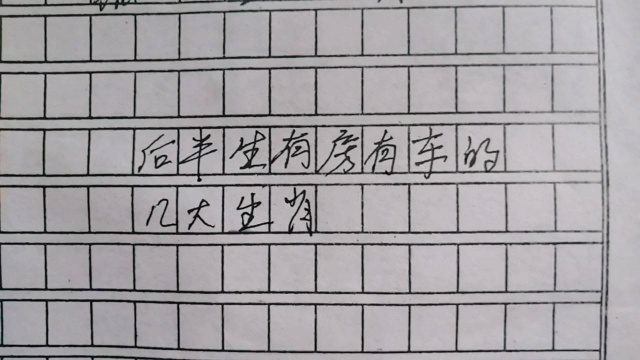 后半生有房有车的
几大生肖